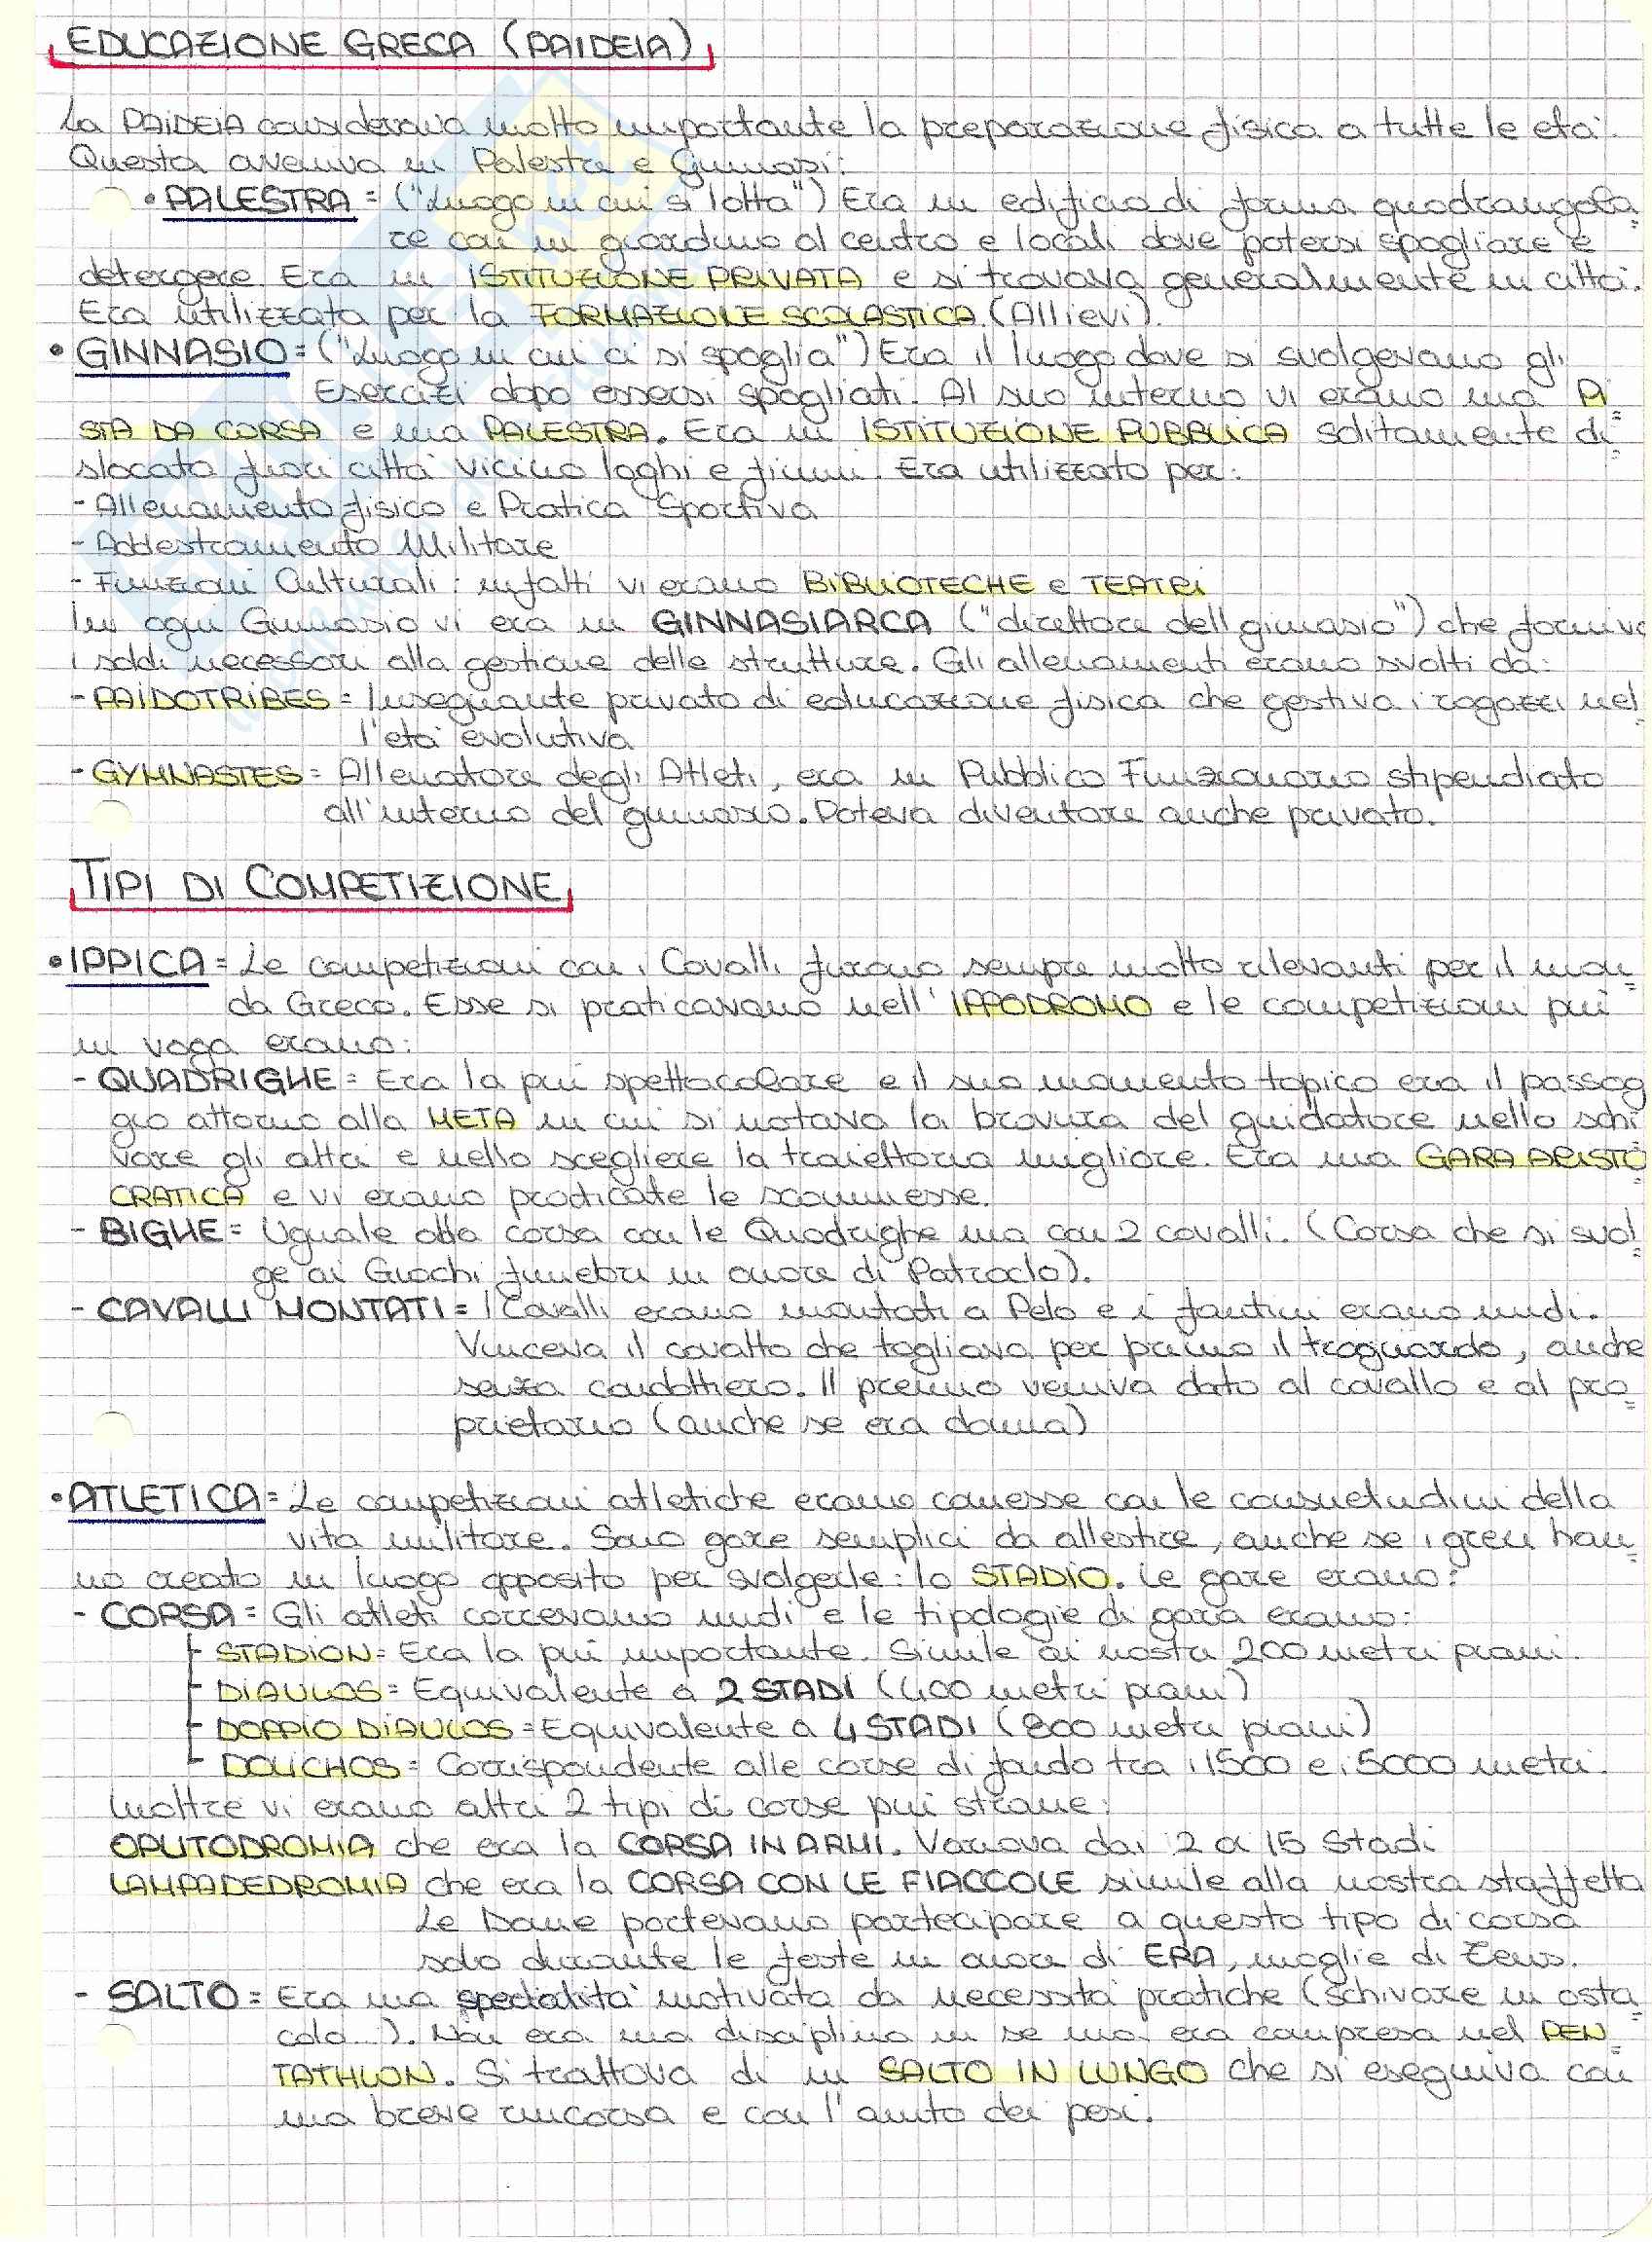 EDUCAZIONE GRECA (PAIDEIA)
La PAIDEIA considerava molto importante la preparazione fisica a tutte le età.
Questa avveniva in Palestre e Ginnasi:
• PALESTRA = ("Luogo in cui si lotta") Era un edificio di forma quadrangola=
re con un giardino al centro e locali dove potersi spogliare e
detergere. Era un ISTITUZIONE PRIVATA e si trovava generalmente in città.
Era utilizzata per la FORMAZIONE SCOLASTICA. (Allievi).
• GINNASIO = ("Luogo in cui ci si spoglia") Era il luogo dove si svolgevano gli
Esercizi dopo essersi spogliati. Al suo interno vi erano una PI=
STA DA CORSA e una PALESTRA. Era un ISTITUZIONE PUBBLICA solitamente di=
slocato fuori città vicino laghi e fiumi. Era utilizzato per:
- Allenamento fisico e Pratica Sportiva
- Addestramento Militare
- Funzioni Culturali: infatti vi erano BIBLIOTECHE e TEATRI
In ogni Ginnasio vi era un GINNASIARCA ("direttore dell ginnasio") che forniva
i soldi necessari alla gestione delle strutture. Gli allenamenti erano svolti da:
- PAIDOTRIBES = Insegnante privato di educazione fisica che gestiva i ragazzi nel=
l'età evolutiva
- GYMNASTES = Allenatore degli Atleti, era un Pubblico Funzionario stipendiato
all'interno del ginnasio. Poteva diventare anche privato.
TIPI DI COMPETIZIONE
• IPPICA = Le competizioni con i Cavalli furono sempre molto rilevanti per il mon=
do Greco. Esse si praticavano nell' IPPODROMO e le competizioni più
in voga erano:
- QUADRIGHE = Era la più spettacolare e il suo momento topico era il passag
gio attorno alla META in cui si notava la bravura del guidatore nello schi
vare gli altri e nello scegliere la traiettoria migliore. Era una GARA ARISTO
CRATICA e vi erano praticate le scommesse.
- BIGHE = Uguale alla corsa con le Quadrighe ma con 2 cavalli. (Corsa che si svol=
ge ai Giochi funebri in onore di Patroclo).
- CAVALLI MONTATI = I Cavalli erano montati a Pelo e i fantini erano nudi.
Vinceva il cavallo che tagliava per primo il traguardo, anche
senza condottiero. Il premio veniva dato al cavallo e al pro=
prietario (anche se era donna)
• ATLETICA = Le competizioni atletiche erano connesse con le consuetudini della
vita militare. Sono gare semplici da allestire, anche se i greci han=
no creato un luogo apposito per svolgerle: lo STADIO. Le gare erano:
- CORSA = Gli atleti correvano nudi e le tipologie di gara erano:
- STADION = Era la più importante. Simile ai nostri 200 metri piani.
- DIAULOS = Equivalente a 2 STADI (400 metri piani)
- DOPPIO DIAULOS = Equivalente a 4 STADI (800 metri piani)
- DOLICHOS = Corrispondente alle corse di fondo tra i 1500 e i 5000 metri.
Inoltre vi erano altri 2 tipi di corse più strane:
OPLITODROMIA che era la CORSA IN ARMI. Variava dai 2 ai 15 Stadi
LAMPADEDROMIA che era la CORSA CON LE FIACCOLE simile alla nostra staffetta
Le Donne portevano partecipare a questo tipo di corsa
solo durante le feste in onore di ERA, moglie di Zeus.
- SALTO = Era una specialità motivata da necessità pratiche (schivare un osta=
colo...). Non era una disciplina in se ma era compresa nel PEN=
TATHLON. Si trattava di un SALTO IN LUNGO che si eseguiva con
una breve rincorsa e con l'aiuto dei pesi.